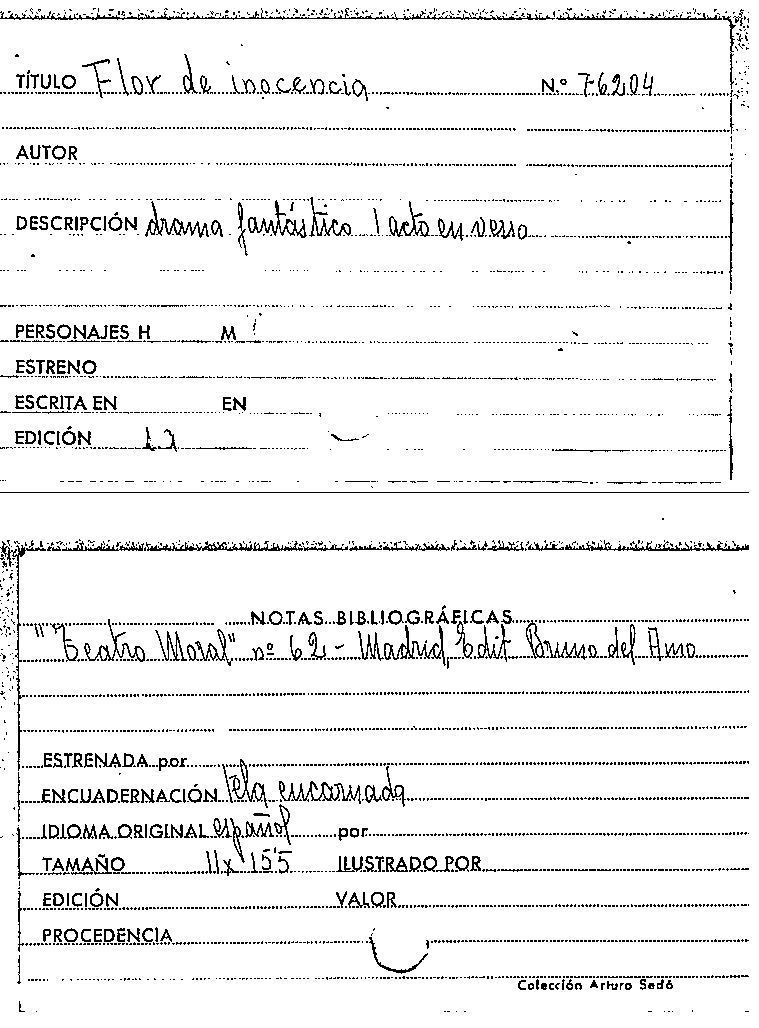 TÍTULO Flor de inocencia N.º 76204
AUTOR
DESCRIPCIÓN drama fantástico 1 acto en verso
PERSONAJES H M
ESTRENO
ESCRITA EN EN
EDICIÓN
NOTAS BIBLIOGRÁFICAS
"Teatro Moral" nº 62 - Madrid, Edit Bruno del Amo
ESTRENADA por
ENCUADERNACIÓN tela encarnada
IDIOMA ORIGINAL español por
TAMAÑO 11x15'5 ILUSTRADO POR
EDICIÓN VALOR
PROCEDENCIA
Colección Arturo Sedó